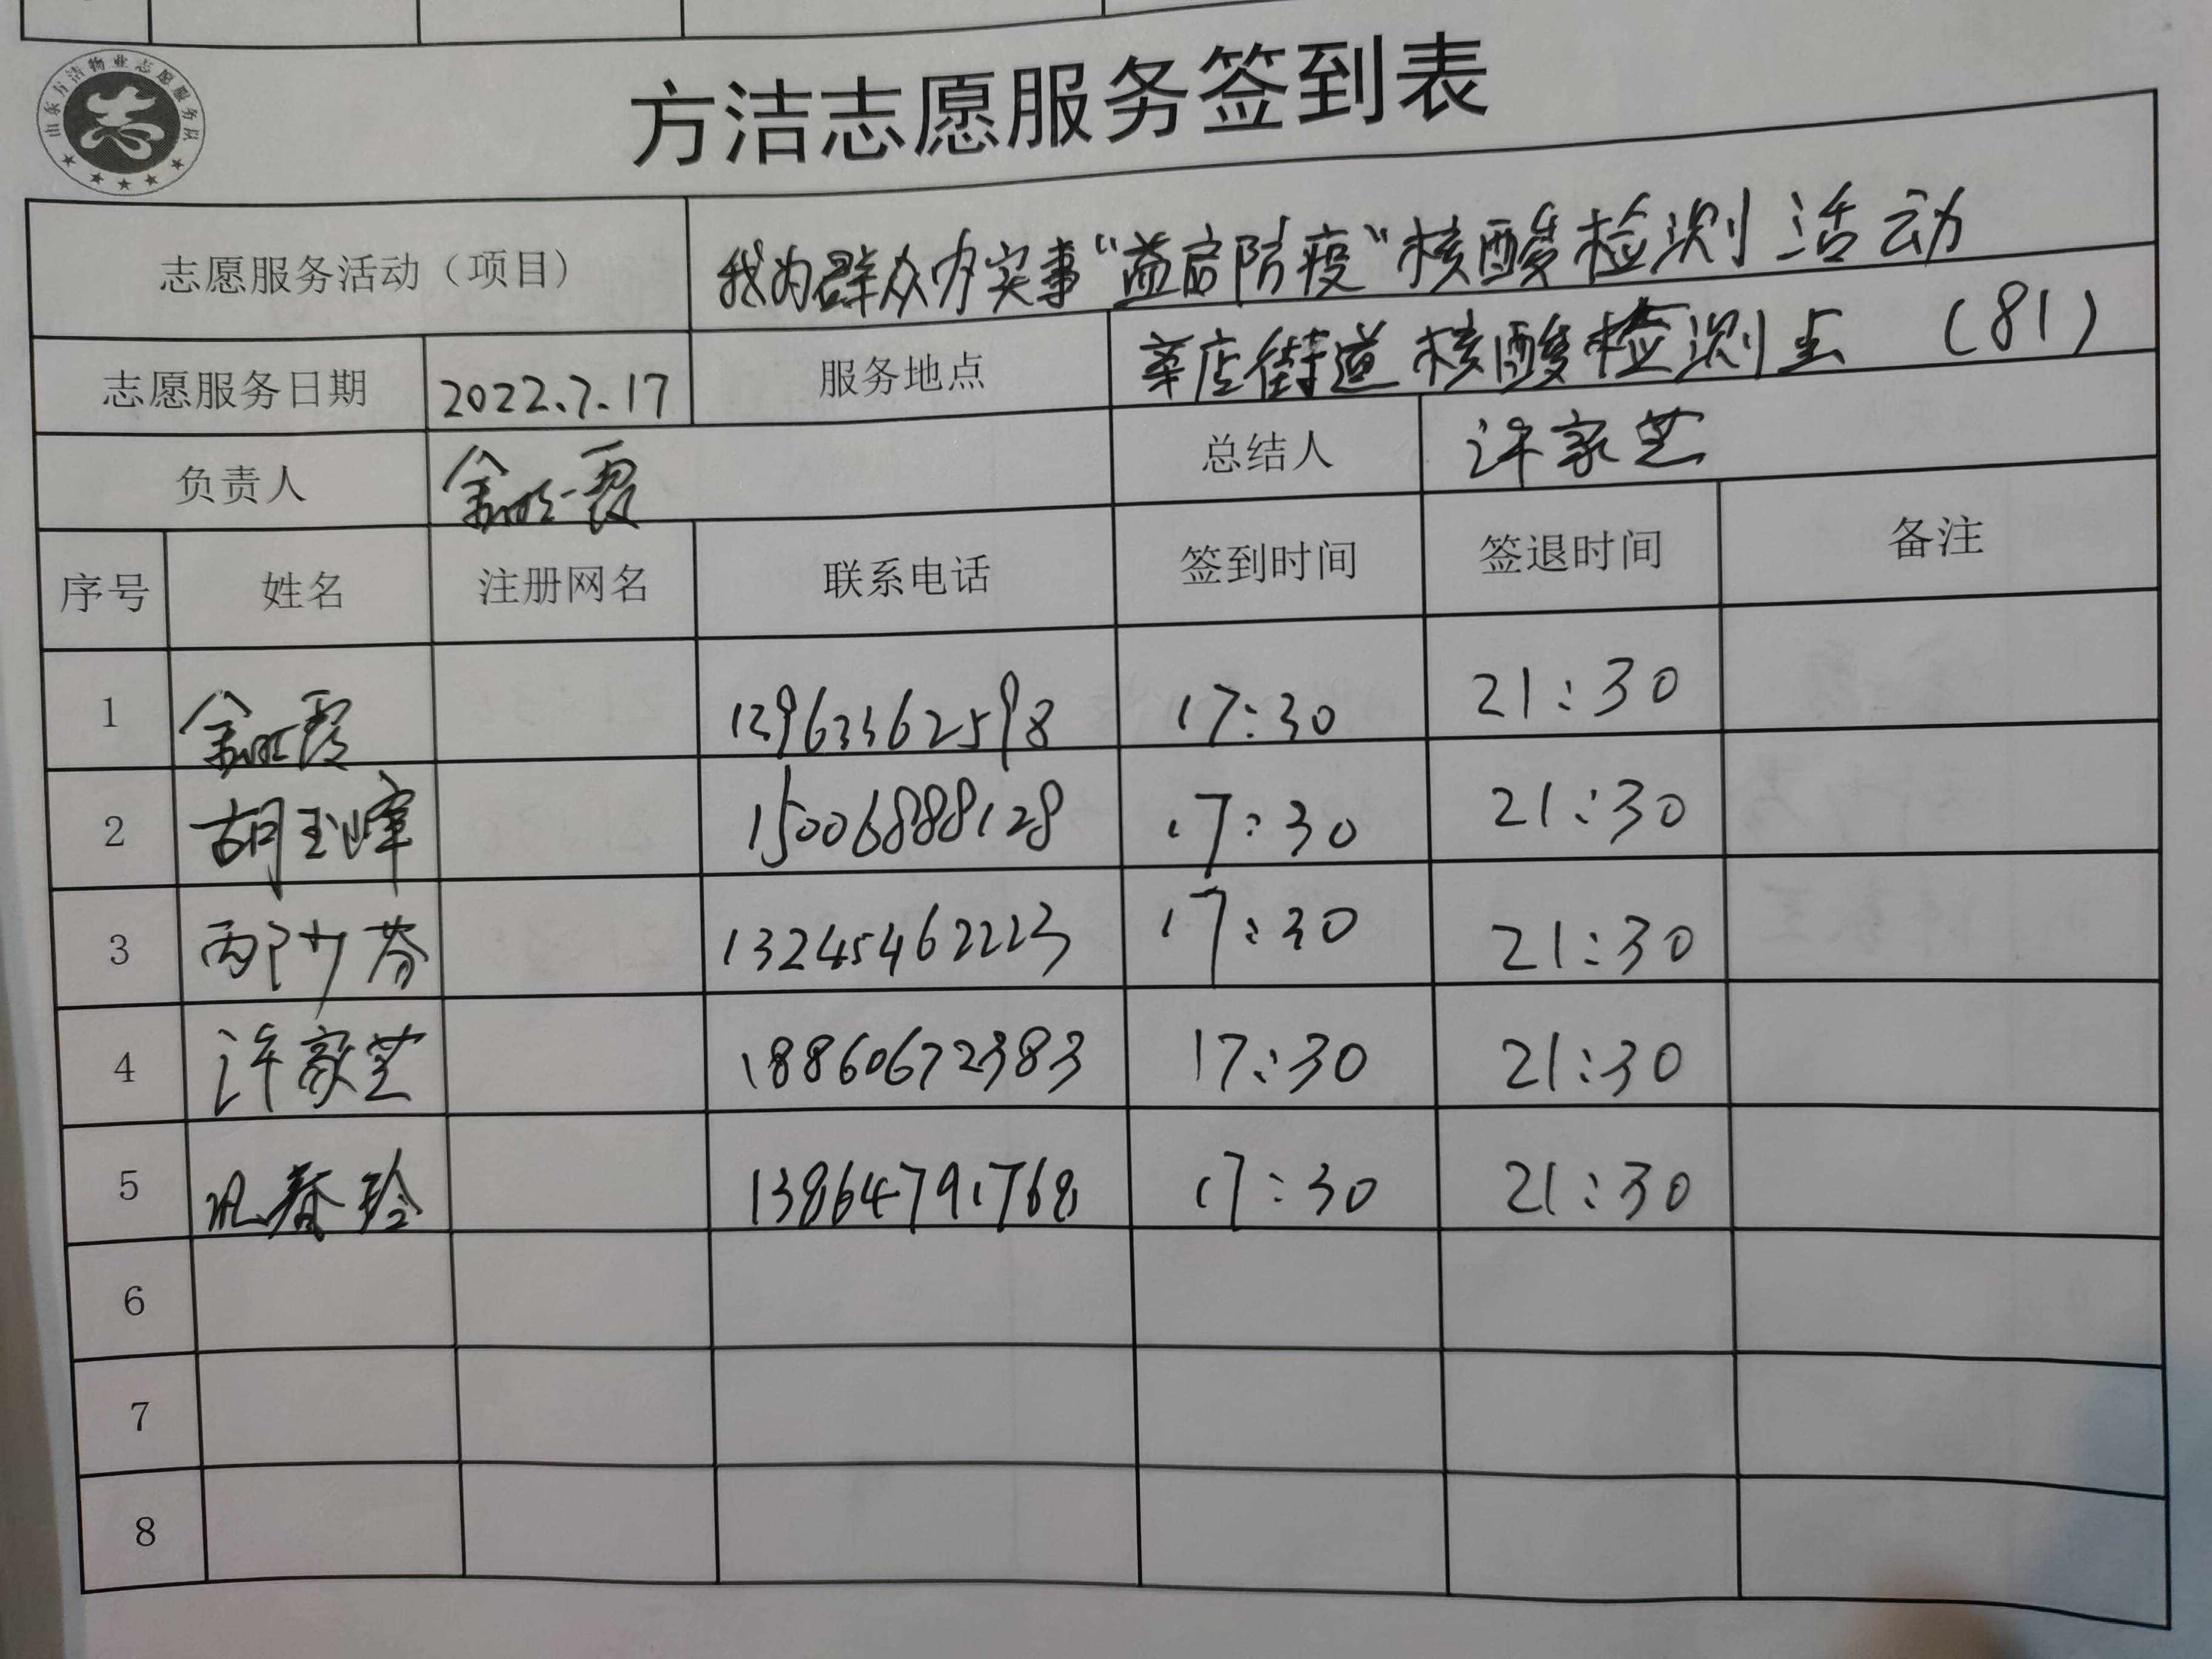 山东方洁物业志愿服务队
方洁志愿服务签到表
志愿服务活动（项目） 我为群众办实事“益启防疫”核酸检测活动
志愿服务日期 2022.7.17 服务地点 辛店街道核酸检测点 (81)
负责人 总结人 许家芝
序号 姓名 注册网名 联系电话 签到时间 签退时间 备注
1 17:30 21:30
2 胡玉峰 15006888128 17:30 21:30
3 邴少芬 13245462223 17:30 21:30
4 许家芝 18860672383 17:30 21:30
5 春玲 13864791768 17:30 21:30
6
7
8